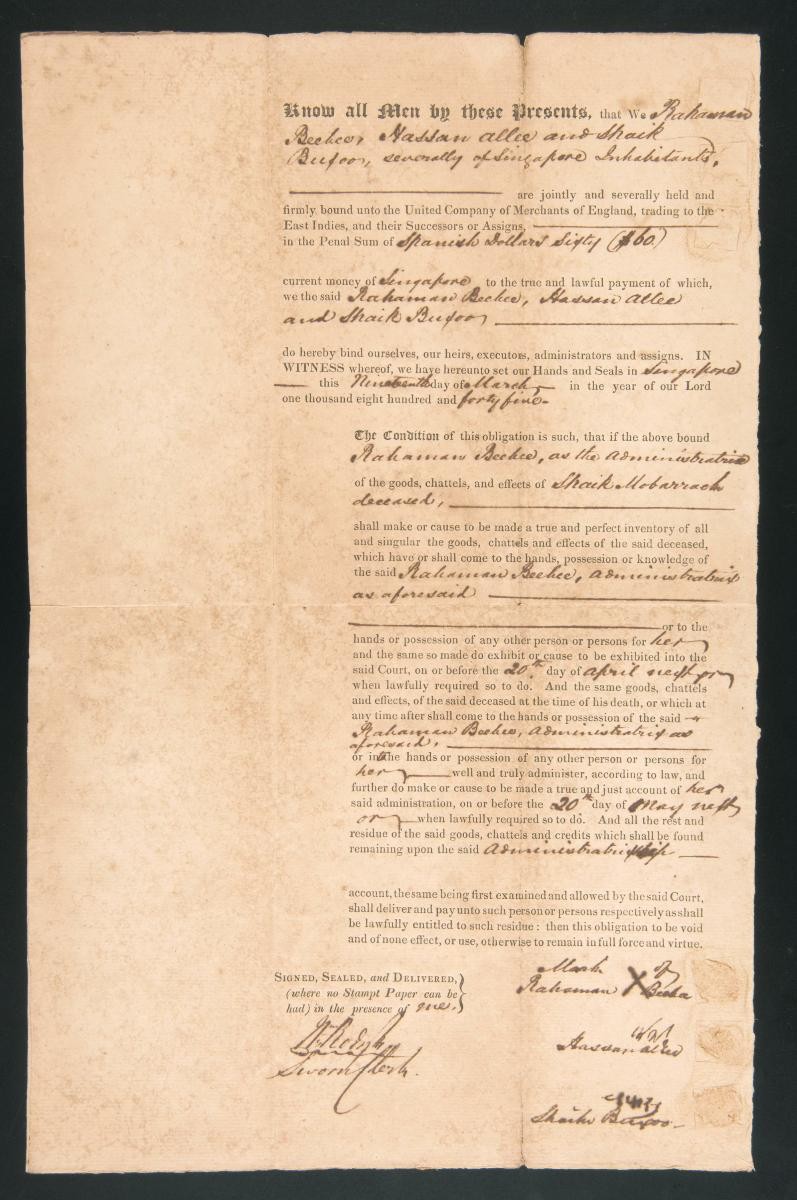 Know all Men by these Presents, that We Rahaman
Beehee, Hassan Allee and Shaik
Buxoo, severally of Singapore Inhabitants,
are jointly and severally held and
firmly bound unto the United Company of Merchants of England, trading to the
East Indies, and their Successors or Assigns,
in the Penal Sum of Spanish Dollars Sixty ($60.)
current money of Singapore to the true and lawful payment of which,
we the said Rahaman Beehee, Hassan Allee
and Shaik Buxoo
do hereby bind ourselves, our heirs, executors, administrators and assigns. IN
WITNESS whereof, we have hereunto set our Hands and Seals in Singapore
this Nineteenth day of March in the year of our Lord
one thousand eight hundred and forty five.
The Condition of this obligation is such, that if the above bound
Rahaman Beehee, as the Administratrix
of the goods, chattels, and effects of Shaik Mobarrack
deceased,
shall make or cause to be made a true and perfect inventory of all
and singular the goods, chattels and effects of the said deceased,
which have or shall come to the hands, possession or knowledge of
the said Rahaman Beehee, Administratrix
as aforesaid
or to the
hands or possession of any other person or persons for her
and the same so made do exhibit or cause to be exhibited into the
said Court, on or before the 20th day of April next or
when lawfully required so to do. And the same goods, chattels
and effects, of the said deceased at the time of his death, or which at
any time after shall come to the hands or possession of the said
Rahaman Beehee, Administratrix as
aforesaid,
or into the hands or possession of any other person or persons for
her well and truly administer, according to law, and
further do make or cause to be made a true and just account of her
said administration, on or before the 20th day of May next
or when lawfully required so to do. And all the rest and
residue of the said goods, chattels and credits which shall be found
remaining upon the said Administratrixship
account, the same being first examined and allowed by the said Court,
shall deliver and pay unto such person or persons respectively as shall
be lawfully entitled to such residue: then this obligation to be void
and of none effect, or use, otherwise to remain in full force and virtue.
SIGNED, SEALED, and DELIVERED,
(where no Stampt Paper can be
had) in the presence of me.
Sworn Clerk.
Mark of
Rahaman X Beeha
Hassan Allee
Shaik Buxoo